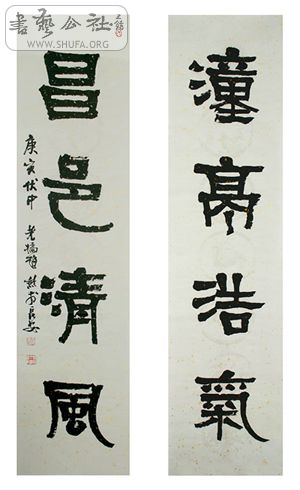 書藝公社
WWW.SHUFA.ORG
潼亭浩氣
昌邑清風
庚寅伏中